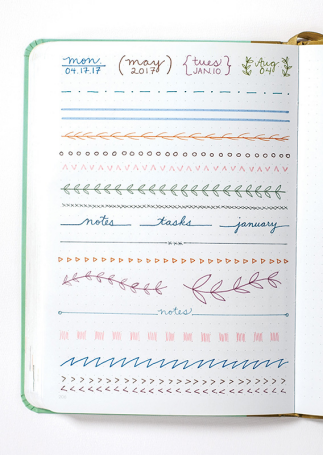 mon.
04.17.17
(may)
2017
{tues}
JAN10
Aug
04
notes tasks january
notes